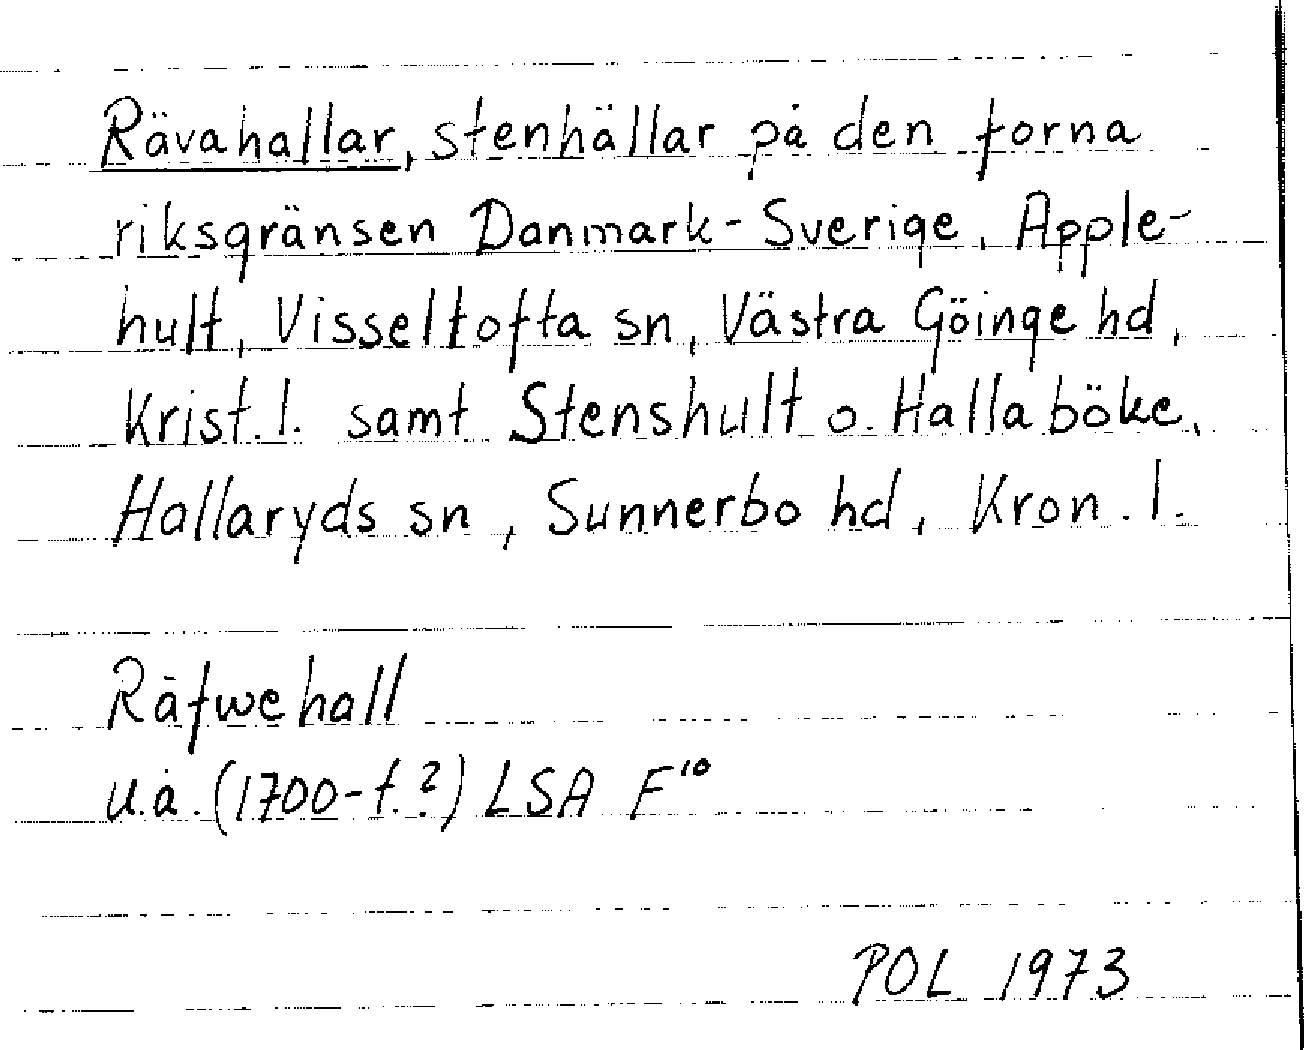 Rävahallar, stenhällar på den forna
riksgränsen Danmark-Sverige, Apple-
hult, Visseltofta sn, Västra Göinge hd,
Krist. l. samt Stenshult o. Hallaböke,
Hallaryds sn, Sunnerbo hd, Kron. l.
Råfwehall
u.å. (1700-t.?) LSA F¹⁰
POL 1973